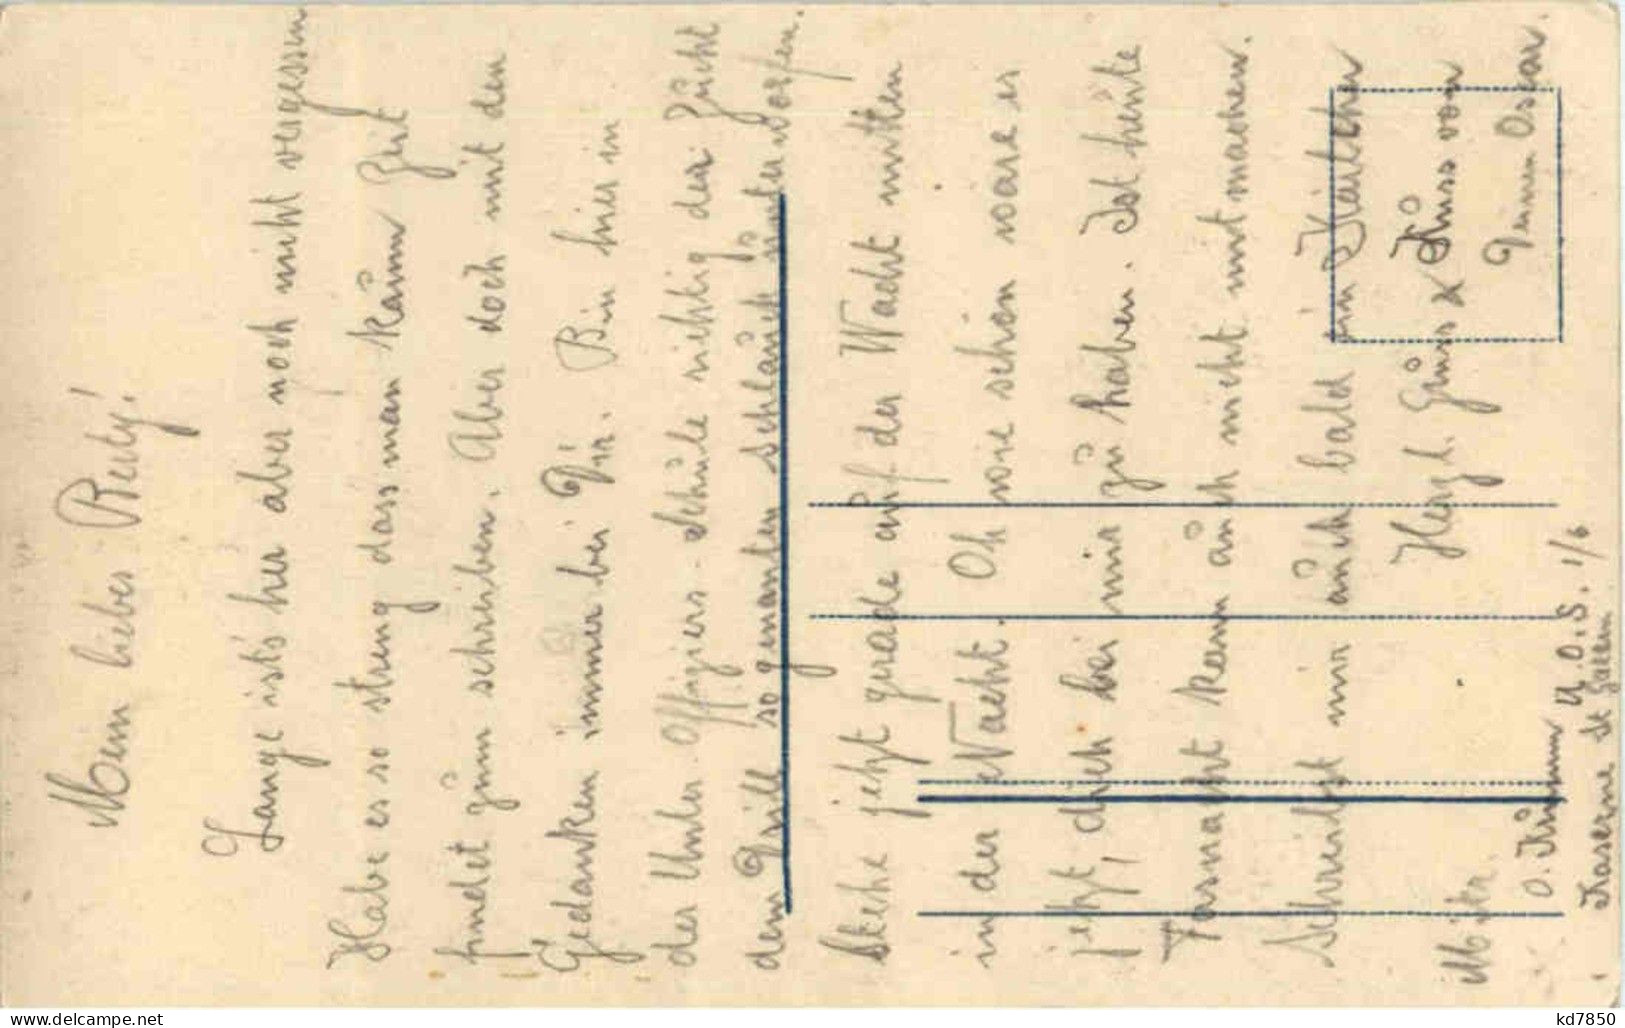 Mein liebes Reity!
Lange ist's her aber noch nicht vergessen
Habe es so streng dass man kaum Zeit
findet zum schreiben. Aber doch mit den
Gedanken immer bei Dir. Bin hier in
der Unter-Offiziers-Schule richtig der Zucht
dem Drill so genanten Schlauch unterworfen.
Stehe jetzt gerade auf der Wacht mitten
in der Nacht. Oh wie schön wäre es
jetzt, dich bei mir zu haben. Ist heute
Fasnacht kann auch nicht mitmachen.
Schreibst mir auch bald ein Kärtchen
Herzl. Gruss & Kuss von
Deinem Oskar.
Mitr.
O. Krumm U.O.S. 1/6
Kaserne St Gallen
kd7850